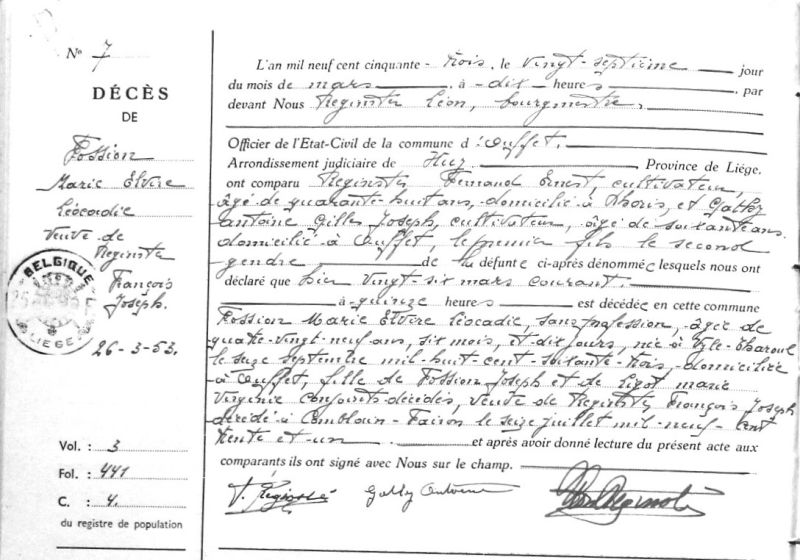 N° 7
DÉCÈS
DE
Fossion
Marie Elvire
Léocadie
Veuve de
Reginster
François
Joseph.
26-3-53.
BELGIQUE
LIEGE
Vol. : 3
Fol. : 441
C. : 4.
du registre de population
L'an mil neuf cent cinquante - trois, le vingt-septième jour
du mois de mars, à dix heures, par
devant Nous Reginster Léon, bourgmestre,
Officier de l'Etat-Civil de la commune d'Ouffet.
Arrondissement judiciaire de Huy, Province de Liége,
ont comparu Reginster Fernand Ernest, cultivateur,
âgé de quarante-huit ans, domicilié à Xhoris, et
Antoine Gilles Joseph, cultivateur, âgé de soixante ans
domicilié à Ouffet, le premier fils le second
gendre de la défunte ci-après dénommée lesquels nous ont
déclaré que hier vingt-six mars courant.
à quinze heures est décédée en cette commune
Fossion Marie Elvire Léocadie, sans profession, âgée de
quatre-vingt-neuf ans, six mois, et dix jours, née à Vyle-Tharoul
le seize septembre mil-huit cent-soixante-trois, domiciliée
à Ouffet, fille de Fossion Joseph et de Ligot Marie
Virginie conjoints décédés, veuve de Reginster François Joseph
décédé à Comblain-Fairon le seize juillet mil-neuf-cent
trente et un. et après avoir donné lecture du présent acte aux
comparants ils ont signé avec Nous sur le champ.